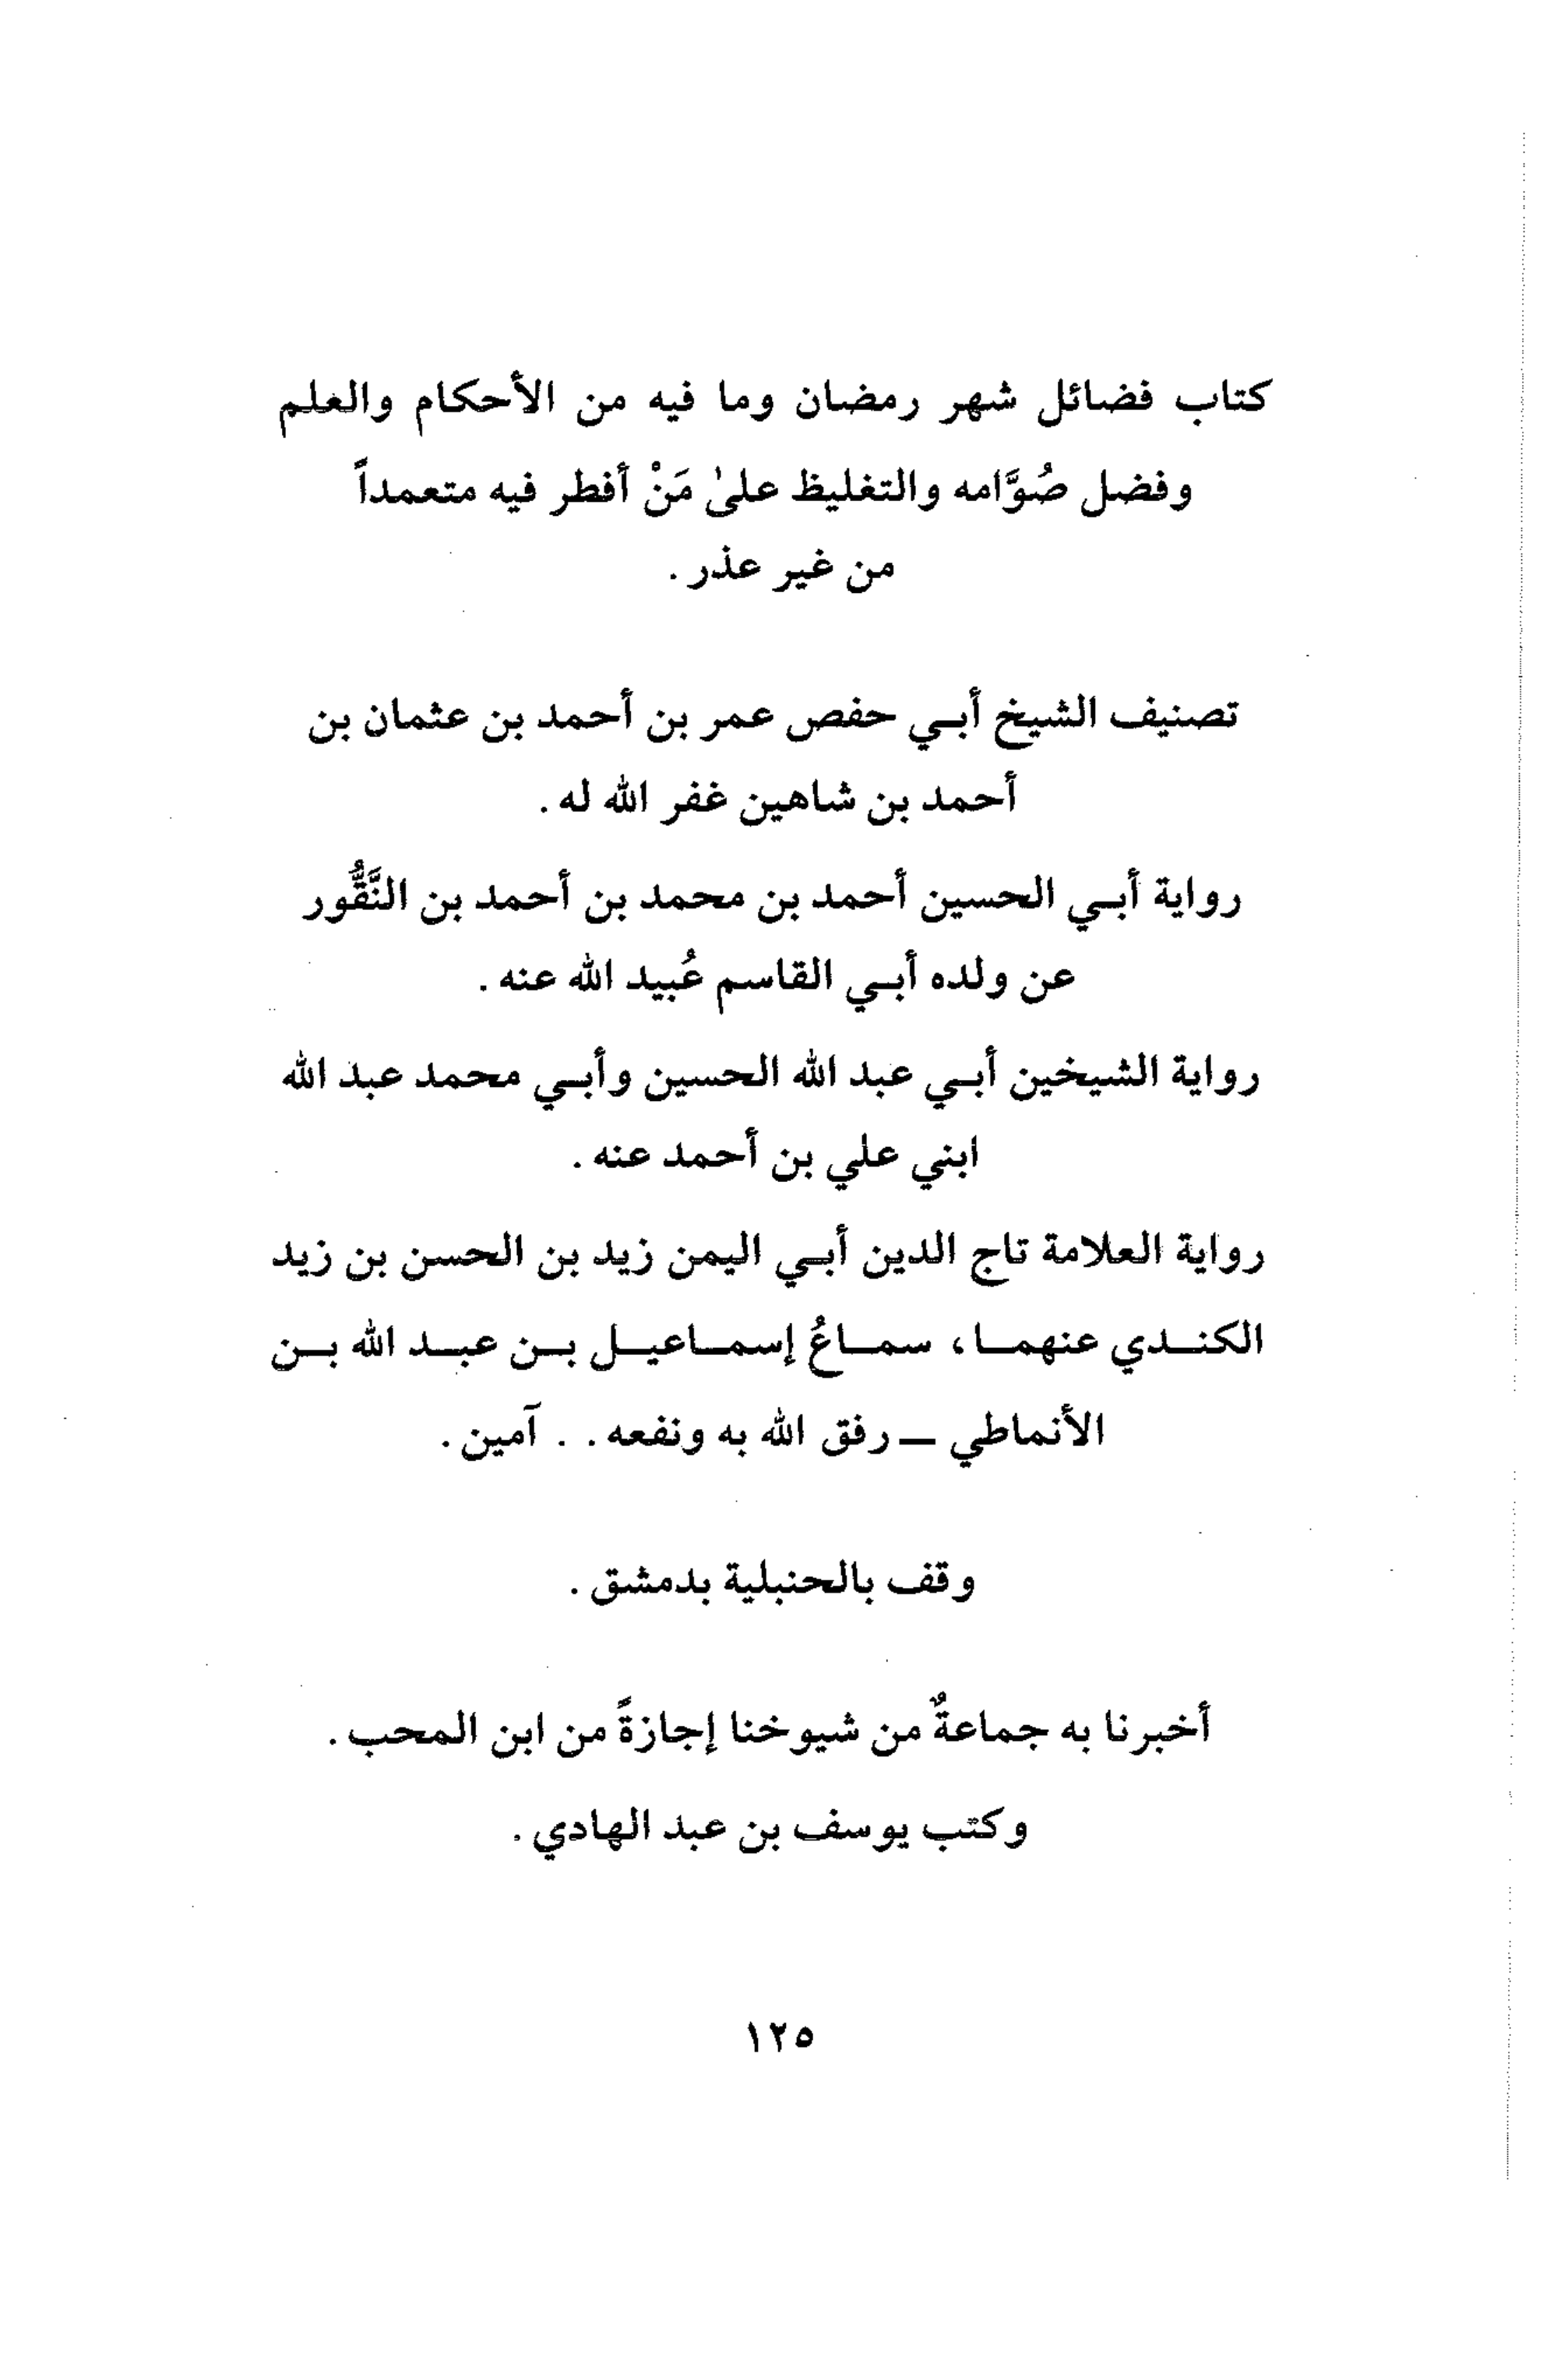 كتاب فضائل شهر رمضان وما فيه من الأحكام والعلم
وفضل صُوَّامه والتغليظ علىٰ مَنْ أفطر فيه متعمداً
من غير عذر .
تصنيف الشيخ أبـي حفص عمر بن أحمد بن عثمان بن
أحمد بن شاهين غفر الله له .
رواية أبـي الحسين أحمد بن محمد بن أحمد بن النَّقُّور
عن ولده أبـي القاسم عُبيد الله عنه .
رواية الشيخين أبـي عبد الله الحسين وأبـي محمد عبد الله
ابني علي بن أحمد عنه .
رواية العلامة تاج الدين أبـي اليمن زيد بن الحسن بن زيد
الكنـدي عنهمـا، سمـاعُ إسمـاعيـل بـن عبـد الله بـن
الأنماطي ــ رفق الله به ونفعه . . آمين .
وقف بالحنبلية بدمشق .
أخبرنا به جماعةٌ من شيوخنا إجازةً من ابن المحب .
وكتب يوسف بن عبد الهادي .
١٢٥